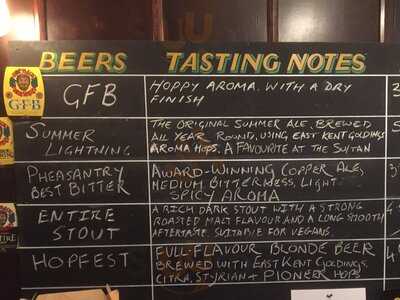 BEERS TASTING NOTES
GFB
GFB
HOPPY AROMA. WITH A DRY
FINISH
SUMMER
LIGHTNING
THE ORIGINAL SUMMER ALE, BREWED
ALL YEAR ROUND, USING EAST KENT GOLDINGS
AROMA HOPS. A FAVOURITE AT THE SULTAN
PHEASANTRY
BEST BITTER
AWARD-WINNING COPPER ALE,
MEDIUM BITTERNESS, LIGHT
SPICY AROMA
ENTIRE
STOUT
A RICH DARK STOUT WITH A STRONG
ROASTED MALT FLAVOUR AND A LONG SMOOTH
AFTERTASTE. SUITABLE FOR VEGANS.
HOPFEST
FULL-FLAVOUR BLONDE BEER
BREWED WITH EAST KENT GOLDINGS,
CITRA, STYRIAN + PIONEER HOPS